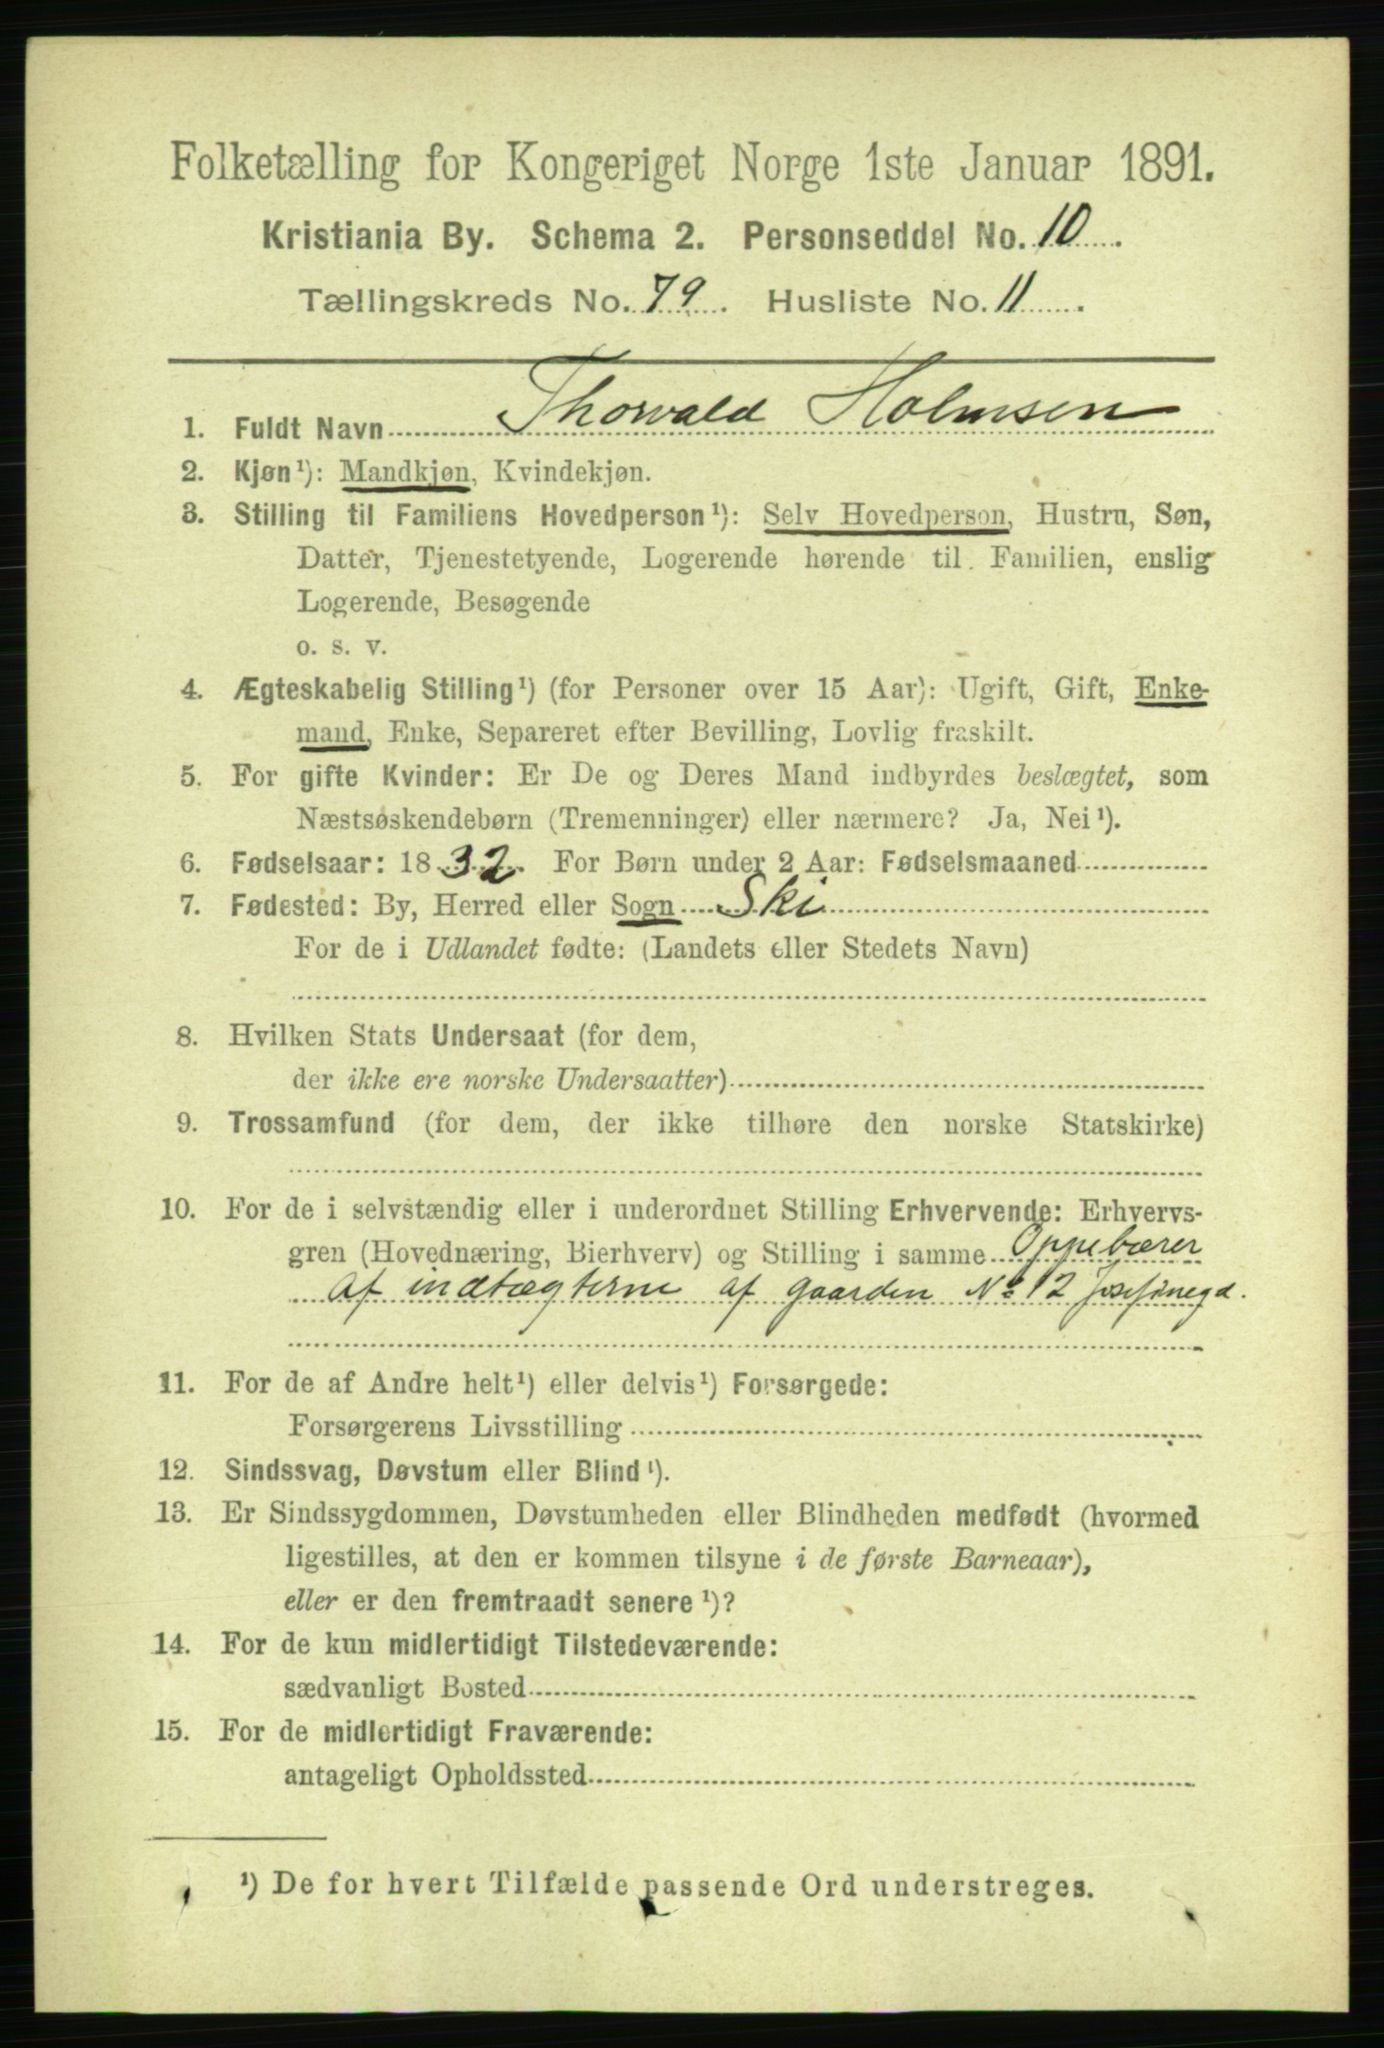 Folketælling for Kongeriget Norge 1ste Januar 1891.
Kristiania By. Schema 2. Personseddel No. 10.
Tællingskreds No. 79. Husliste No. 11.
1. Fuldt Navn Thorvald Holmsen
2. Kjøn¹): Mandkjøn, Kvindekjøn.
3. Stilling til Familiens Hovedperson¹): Selv Hovedperson, Hustru, Søn,
Datter, Tjenestetyende, Logerende hørende til Familien, enslig
Logerende, Besøgende
o. s. v.
4. Ægteskabelig Stilling¹) (for Personer over 15 Aar): Ugift, Gift, Enke-
mand, Enke, Separeret efter Bevilling, Lovlig fraskilt.
5. For gifte Kvinder: Er De og Deres Mand indbyrdes beslægtet, som
Næstsøskendebørn (Tremenninger) eller nærmere? Ja, Nei¹).
6. Fødselsaar: 1832. For Børn under 2 Aar: Fødselsmaaned
7. Fødested: By, Herred eller Sogn Ski
For de i Udlandet fødte: (Landets eller Stedets Navn)
8. Hvilken Stats Undersaat (for dem,
der ikke ere norske Undersaatter)
9. Trossamfund (for dem, der ikke tilhøre den norske Statskirke)
10. For de i selvstændig eller i underordnet Stilling Erhvervende: Erhvervs-
gren (Hovednæring, Bierhverv) og Stilling i samme Oppebærer
af indtægterne af gaarden No 12 Josefinegd.
11. For de af Andre helt¹) eller delvis¹) Forsørgede:
Forsørgerens Livsstilling
12. Sindssvag, Døvstum eller Blind¹).
13. Er Sindssygdommen, Døvstumheden eller Blindheden medfødt (hvormed
ligestilles, at den er kommen tilsyne i de første Barneaar),
eller er den fremtraadt senere¹)?
14. For de kun midlertidigt Tilstedeværende:
sædvanligt Bosted
15. For de midlertidigt Fraværende:
antageligt Opholdssted
¹) De for hvert Tilfælde passende Ord understreges.